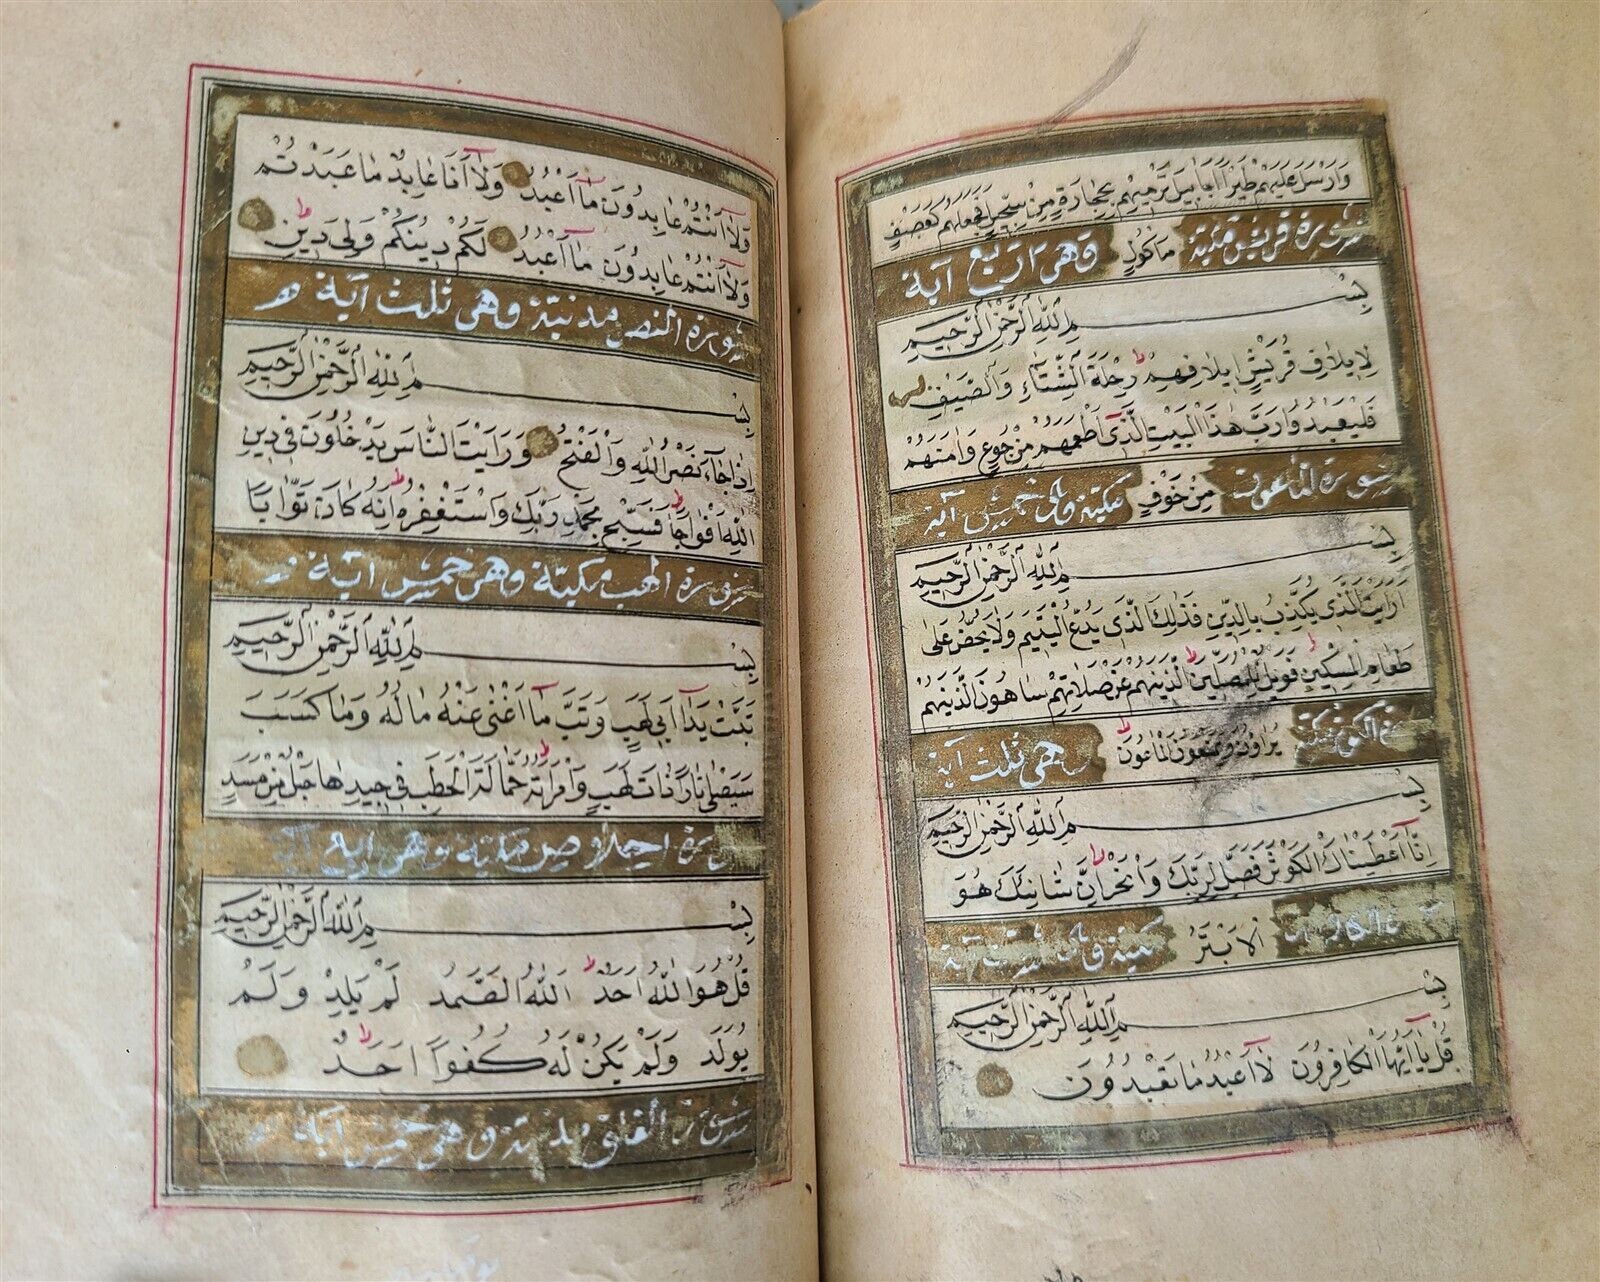 وَاَرْسَلَ عَلَيْهِمْ طَيْرًا اَبَابِيلَ تَرْمِيهِمْ بِحِجَارَةٍ مِنْ سِجِّيلٍ فَجَعَلَهُمْ كَعَصْفٍ
سورة قريش مكية مَاْكُولٍ وهى اربع آية
بِسْمِ اللّٰهِ الرَّحْمٰنِ الرَّحِيمِ
لِاِيلَافِ قُرَيْشٍ اِيلَافِهِمْ رِحْلَةَ الشِّتَاءِ وَالصَّيْفِ
فَلْيَعْبُدُوا رَبَّ هٰذَا الْبَيْتِ الَّذِى اَطْعَمَهُمْ مِنْ جُوعٍ وَاٰمَنَهُمْ
سورة الماعون مِنْ خَوْفٍ مكية وهى خمس آية
بِسْمِ اللّٰهِ الرَّحْمٰنِ الرَّحِيمِ
اَرَاَيْتَ الَّذِى يُكَذِّبُ بِالدِّينِ فَذٰلِكَ الَّذِى يَدُعُّ الْيَتِيمَ وَلَا يَحُضُّ عَلٰى
طَعَامِ الْمِسْكِينِ فَوَيْلٌ لِلْمُصَلِّينَ الَّذِينَ هُمْ عَنْ صَلَاتِهِمْ سَاهُونَ الَّذِينَ هُمْ
الكوثر مكية يُرَاؤُنَ وَيَمْنَعُونَ الْمَاعُونَ وهى ثلث آية
بِسْمِ اللّٰهِ الرَّحْمٰنِ الرَّحِيمِ
اِنَّا اَعْطَيْنَاكَ الْكَوْثَرَ فَصَلِّ لِرَبِّكَ وَانْحَرْ اِنَّ شَانِئَكَ هُوَ
الْاَبْتَرُ مكية
بِسْمِ اللّٰهِ الرَّحْمٰنِ الرَّحِيمِ
قُلْ يَا اَيُّهَا الْكَافِرُونَ لَا اَعْبُدُ مَا تَعْبُدُونَ
وَلَا اَنْتُمْ عَابِدُونَ مَا اَعْبُدُ وَلَا اَنَا عَابِدٌ مَا عَبَدْتُمْ
وَلَا اَنْتُمْ عَابِدُونَ مَا اَعْبُدُ لَكُمْ دِينُكُمْ وَلِىَ دِينِ
سورة النصر مدنية وهى ثلث آية
بِسْمِ اللّٰهِ الرَّحْمٰنِ الرَّحِيمِ
اِذَا جَاءَ نَصْرُ اللّٰهِ وَالْفَتْحُ وَرَاَيْتَ النَّاسَ يَدْخُلُونَ فِى دِينِ
اللّٰهِ اَفْوَاجًا فَسَبِّحْ بِحَمْدِ رَبِّكَ وَاسْتَغْفِرْهُ اِنَّهُ كَانَ تَوَّابًا
سورة لهب مكية وهى خمس آية
بِسْمِ اللّٰهِ الرَّحْمٰنِ الرَّحِيمِ
تَبَّتْ يَدَا اَبِى لَهَبٍ وَتَبَّ مَا اَغْنٰى عَنْهُ مَالُهُ وَمَا كَسَبَ
سَيَصْلٰى نَارًا ذَاتَ لَهَبٍ وَامْرَاَتُهُ حَمَّالَةَ الْحَطَبِ فِى جِيدِهَا حَبْلٌ مِنْ مَسَدٍ
سورة اخلاص مكية وهى آية
بِسْمِ اللّٰهِ الرَّحْمٰنِ الرَّحِيمِ
قُلْ هُوَ اللّٰهُ اَحَدٌ اَللّٰهُ الصَّمَدُ لَمْ يَلِدْ وَلَمْ
يُولَدْ وَلَمْ يَكُنْ لَهُ كُفُوًا اَحَدٌ
سورة الفلق مدنية وهى خمس آية